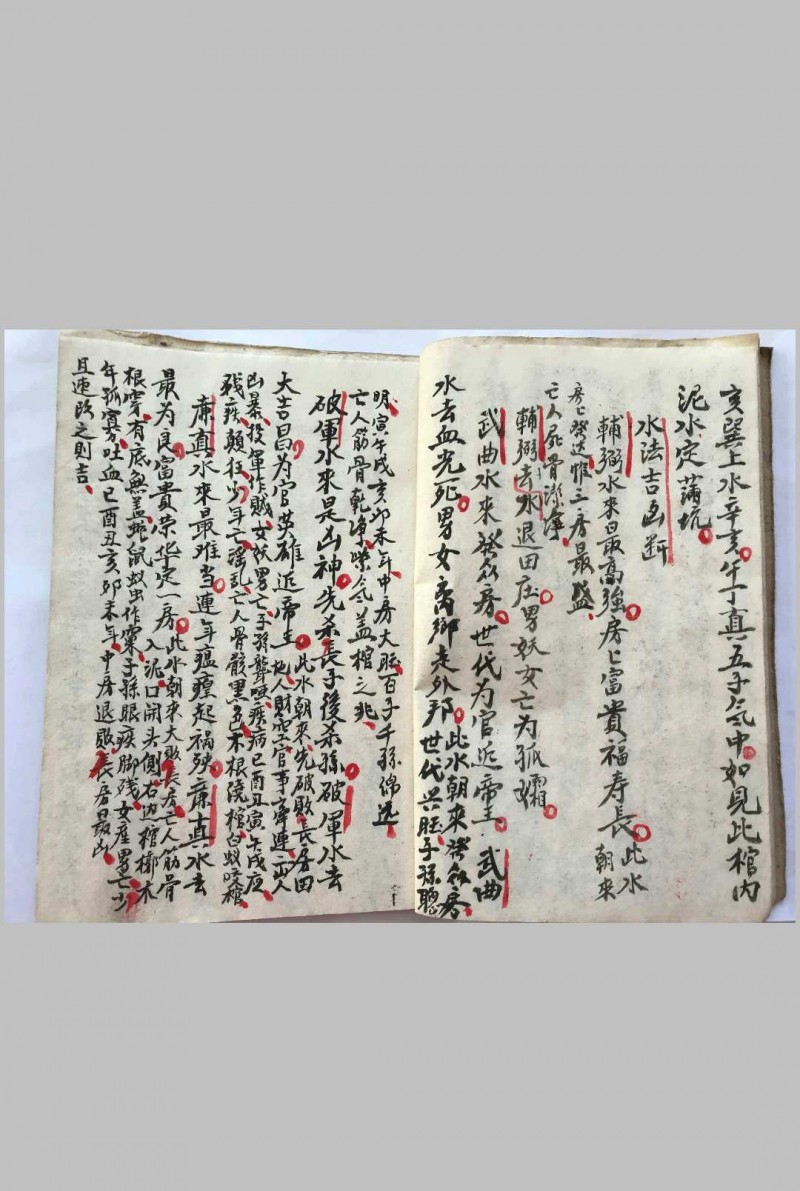 亥巽上水辛亥午丁真五子気中如見此棺内
泥水定蒲坑
水法吉凶断
輔弼水來最高強房匕富貴福寿長此水
朝來
房匕發达惟三房最盛
亡人屍骨潔净
輔弼去水退田庄男妖女亡为孤孀
武曲水來發众房世代为官近帝王武曲
水去血光死男女离鄉走外邦此水朝來發众房
世代兴旺子孫聰
明寅午戌亥卯未年中房大旺百子千孫綿远
亡人筋骨乾净紫気盖棺之兆
破軍水來是凶神先杀長子後杀孫破軍水去
大吉昌为官英雄近帝王此水朝來先破敗長房田
地人財空官事牽連出人
凶暴投軍作賊女妖男亡子孫聾啞疾病巳酉丑寅午戌应
残疾顛狂少年亡淫乱亡人骨骸黑色木根繞棺白蚁咬棺
廉真水來最难当連年瘟瘴起禍殃廉真水去
最为良富貴荣华定一房此水朝來大敗長房亡人筋骨
入泥口開头側右边棺槨木
根穿有底無盖蛇鼠蚁虫作窠子孫眼疾脚残女産男亡少
年孤寡吐血巳酉丑亥卯未年中房退敗長房最凶
且速改之則吉